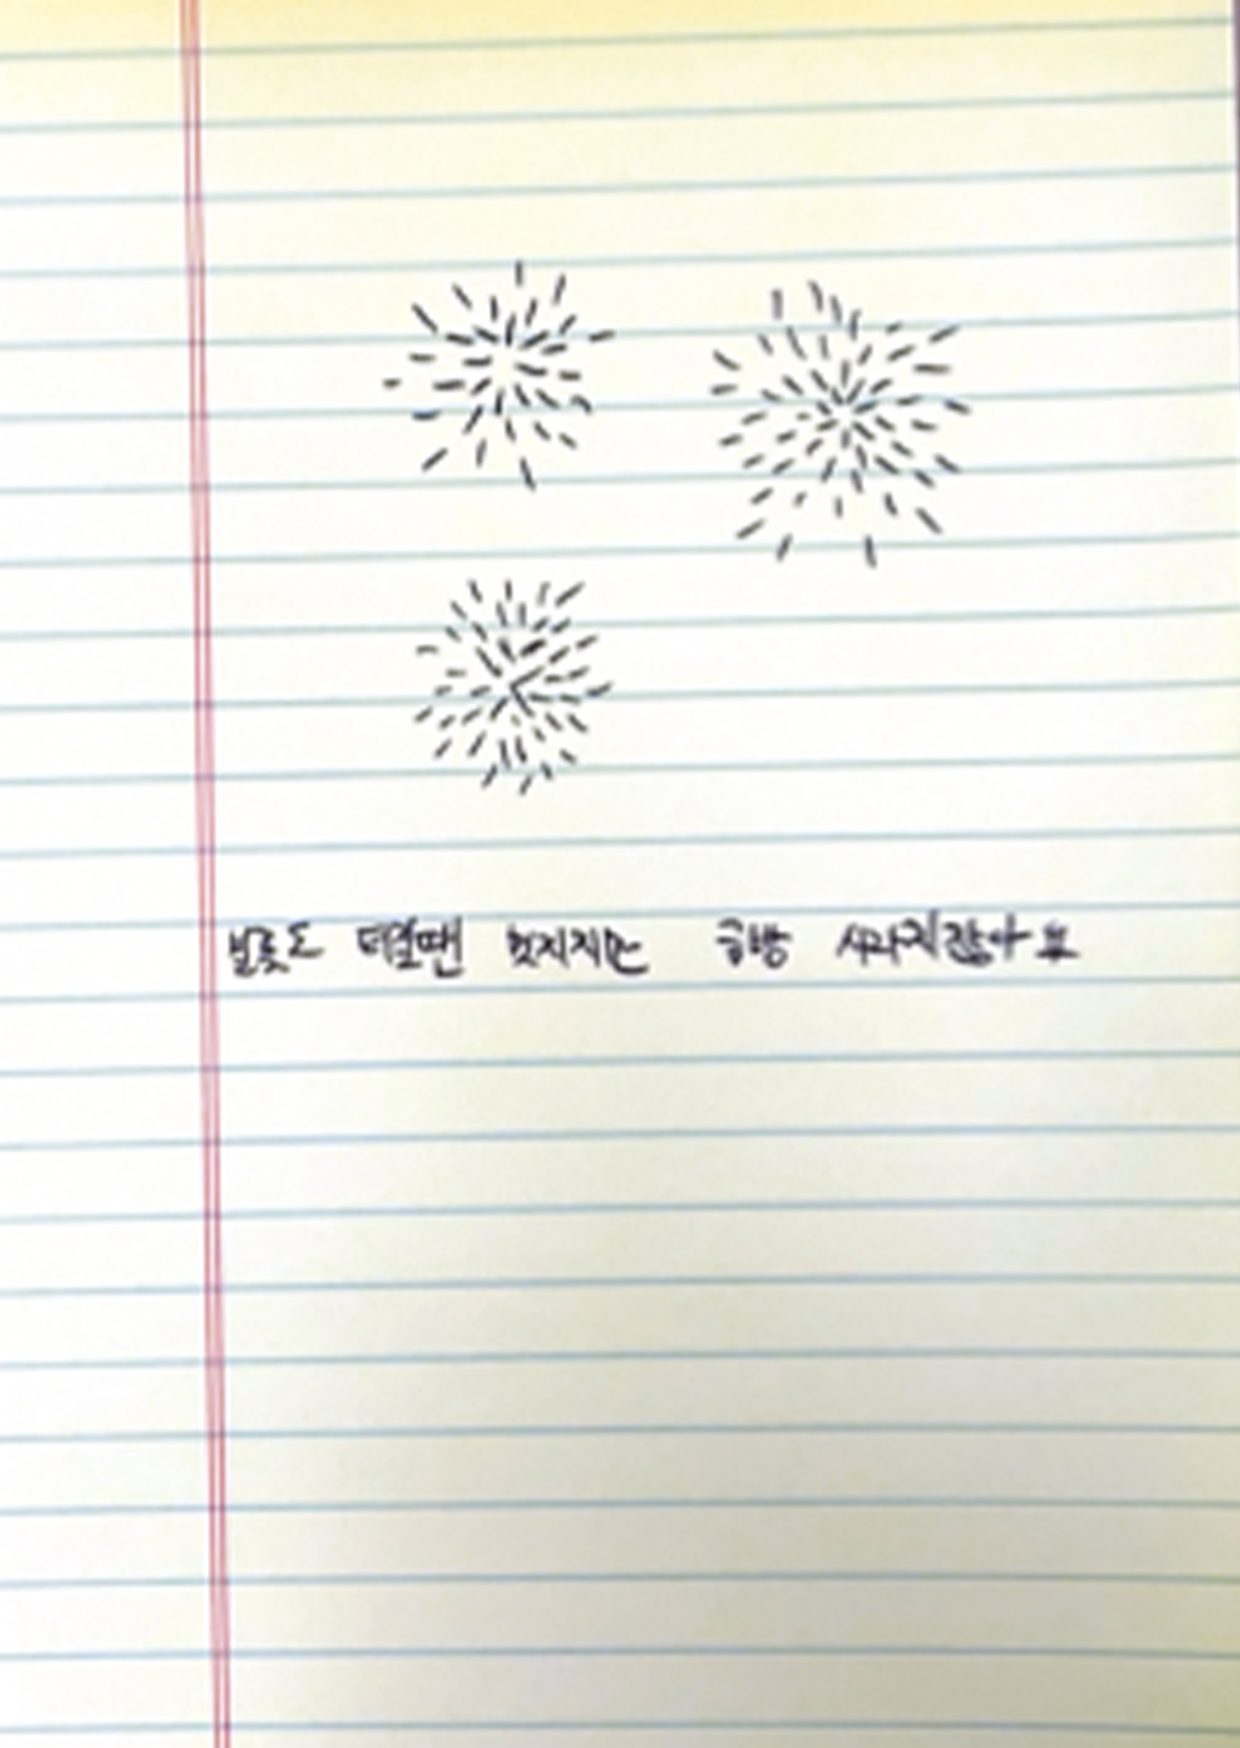 불꽃도 터질땐 멋지지만 금방 사라지잖아요